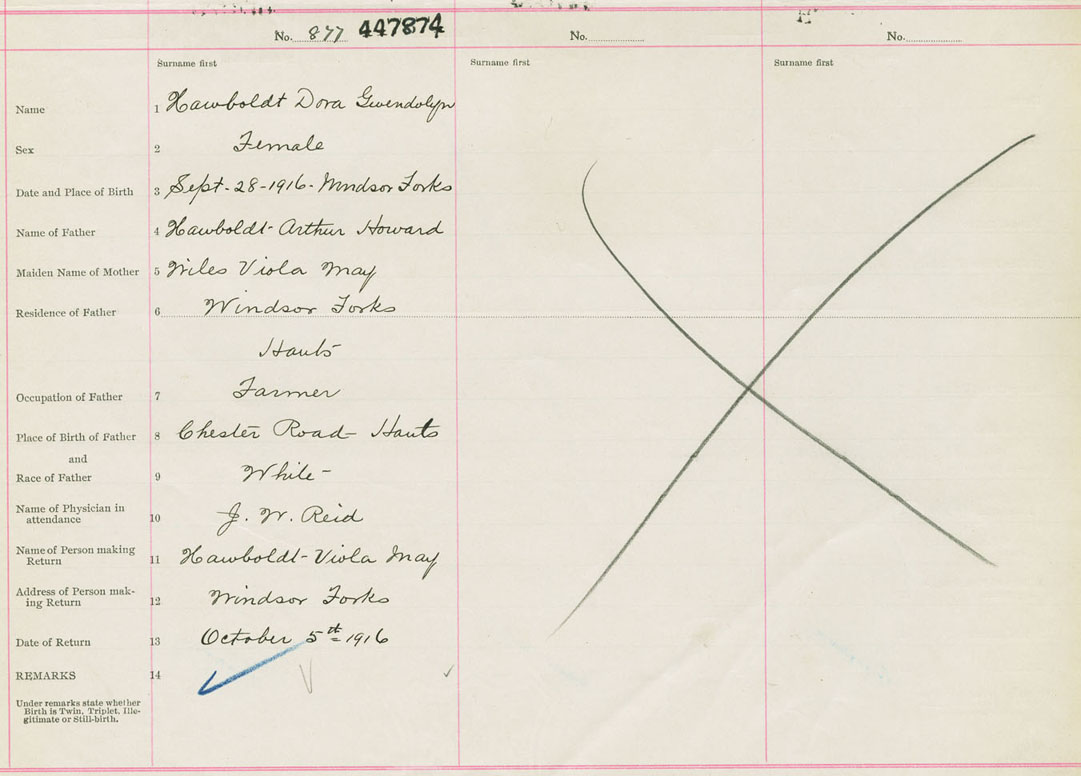 No. 877 447874
No.
No.
Surname first
Surname first
Surname first
Name 1 Hawboldt Dora Gwendolyn
Sex 2 Female
Date and Place of Birth 3 Sept-28-1916-Windsor Forks
Name of Father 4 Hawboldt-Arthur Howard
Maiden Name of Mother 5 Wiles Viola May
Residence of Father 6 Windsor Forks
Hants
Occupation of Father 7 Farmer
Place of Birth of Father 8 Chester Road- Hants
and
Race of Father 9 White-
Name of Physician in
attendance 10 J. W. Reid
Name of Person making
Return 11 Hawboldt-Viola May
Address of Person mak-
ing Return 12 Windsor Forks
Date of Return 13 October 5th 1916
REMARKS 14
Under remarks state whether
Birth is Twin, Triplet, Ille-
gitimate or Still-birth.